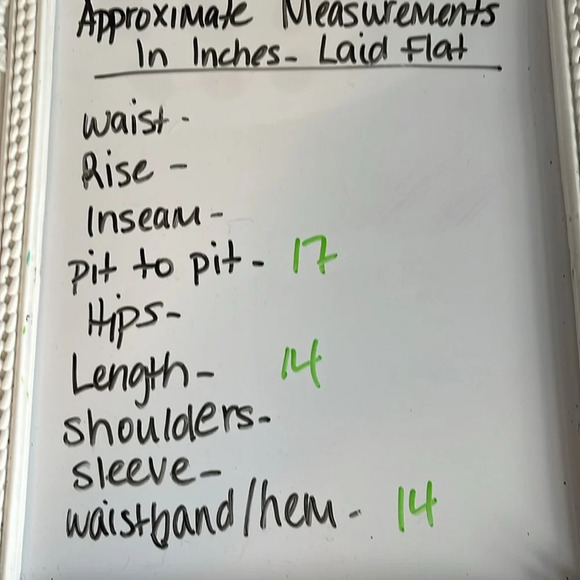 Approximate Measurements
In Inches- Laid Flat
waist-
Rise -
Inseam -
pit to pit - 17
Hips-
Length- 14
shoulders-
sleeve-
waistband/hem - 14